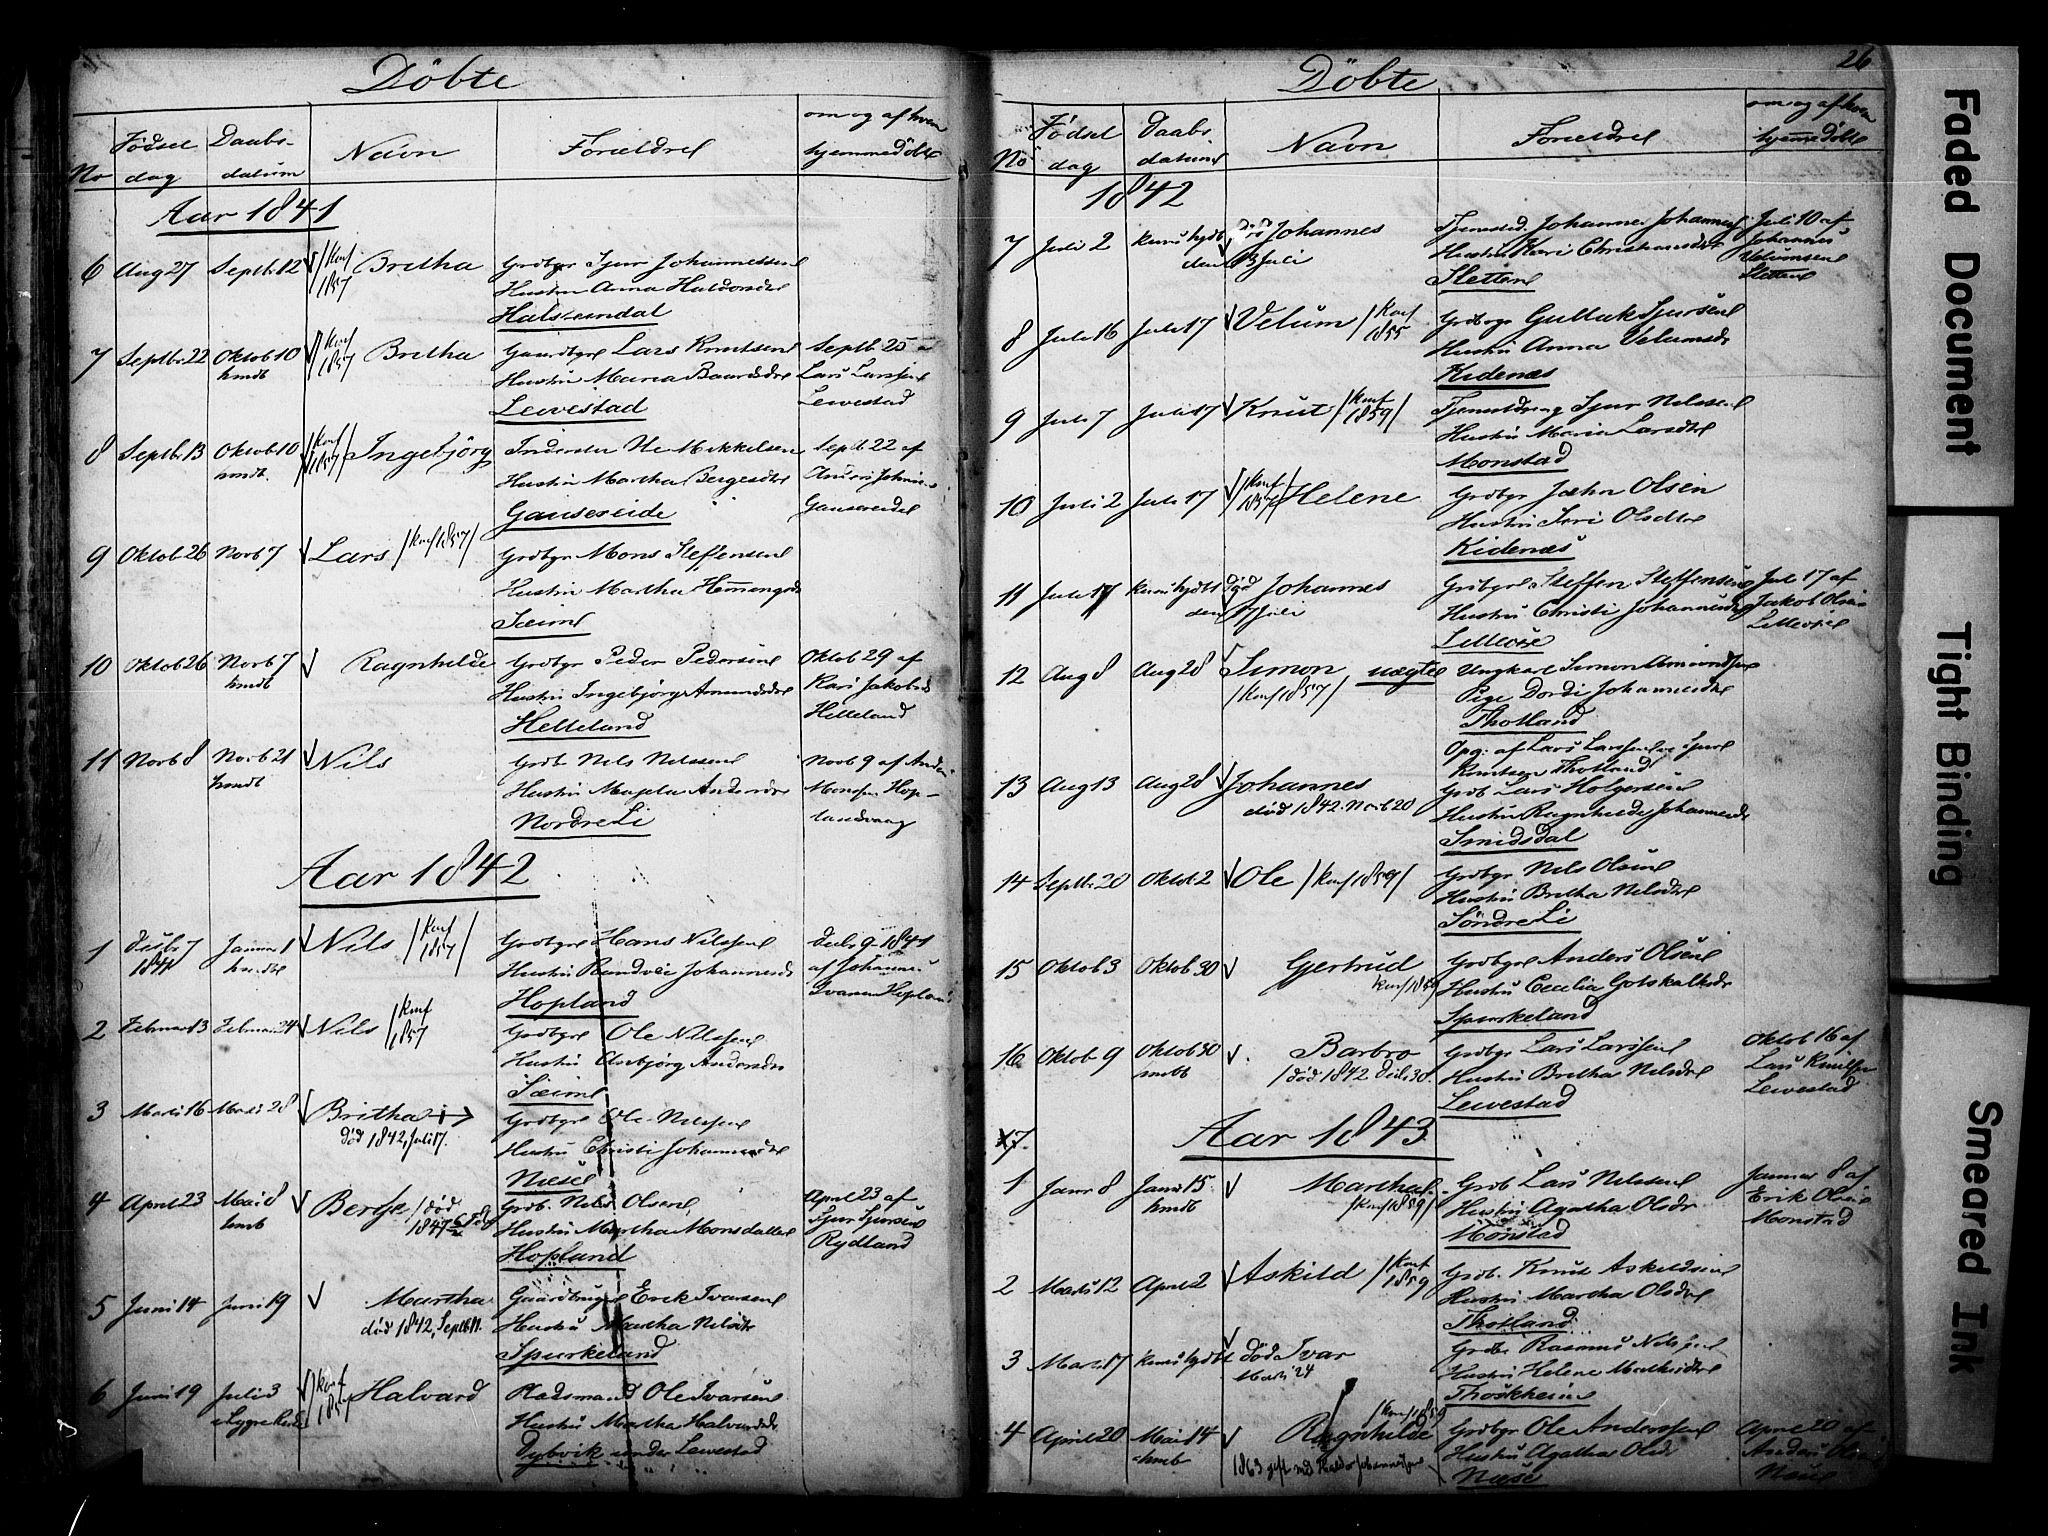 Döbte
No
Födsel dag
Daabs-datum
Navn
Forældre
om og af hvem hjemmedöbte
Aar 1841
6 Aug 27 Septb. 12 /Konf 1857 Britha
Grdbgr Sjur Johannessen
Hustru Anna Haldorsdtr
7 Septbr. 22 Oktob 10 hmdt /Konf 1857 Britha
Gaardbgr Lars Knutsen
Hustru Maria Baardsdtr
Levestad
Septb. 25 a
Lars Larssen
Levestad
8 Septb. 13 Oktob 10 hmdt. /Konf 1857/ Ingebjörg
Inderster Ole Mikkelsen
Hustru Martha Bergesdtr
Septb 22 af
9 Oktob. 26 Novb 7 Lars /Konf 1857/
Grdbgr Mons Steffensen
Hustru Martha
Sæim
10 Oktob 26 Novb 7 hmdt Ragnhilde
Grdbgr Peder Pedersen
Hustru Ingebjörg Amundsdtr
Helleland
Oktob 29 af
Kari Jakobsd
Helleland
11 Novb 8 Novb 21 hmdt Nils
Grdb. Nels Nelssen
Hustru Andersdtr
Nordre Li
Novb 9 af Anders
Monsen Hop-
landsvaag
Aar 1842
1 Decbr 7 1841 Januar 1 hmdt Nils /Konf 1857/
Grdbgr Hans Nilssen
Hustru Randvei Johannesdtr
Hopland
Decb 9-1841
af Johannes
Ivarsen Hopland
2 Februar 13 Februar 24 Nils /Konf 1857
Grdbgr Ole Nilssen
Hustru Andersdtr
Sæim
3 Marts 16 Marts 28 Britha
död 1842, Juli 17.
Grdbgr Ole Nilssen
Hustru Christi Johannesdtr
Næse
4 April 23 Mai 8 hmdt Berge /död 1847
Grdb. Nels Olsen
Hustru Martha Monsdatter
Hopland
April 23 af
Sjur Sjursen
Rydland
5 Juni 14 Juni 19 Martha
död 1842, Septb 11.
Gaardbruger Erik Ivarsen
Hustru Martha Nilsdtr
Spurkeland
6 Juni 19 Juli 3 i Lygre Kirke /Konf 1857 Halvard
Pladsmand Ole Ivarsen
Hustru Martha Halvardsdtr
Dybvik under Levestad
26
Döbte
No
Födsel dag
Daabs datum
Navn
Forældre
om og af hvem hjemmedöbt
1842
7 Juli 2 kuns hjdt död Johannes
den 13 Juli
Tjenested. Johannes Johannes
Hustru Kari Christensdtr
Sletten
Juli 10 af
Johannes
Velumsen
Sletten
8 Juli 16 Juli 17 Velum /Konf 1855
Grdbgr Gullak Sjursen
Hustru Anna Velumsdr
Kidenæs
9 Juli 7 Juli 17 Knut /Konf 1859/
Sjur Nilssen
Hustru Maria Larsdtr
Monstad
10 Juli 2 Juli 17 /Konf 1857/ Helene
Grdbgr John Olsen
Hustru Olsdtr
Kidenæs
11 Juli 17 kuns hjdt död Johannes
den 17 Juli
Grdbgr Steffen Steffensen
Hustru Christi Johannesdtr
Lilleose
Juli 17 af
Jakob Olsen
Lilleose
12 Aug 8 Aug 28 Simon uægte
/Konf 1857/
Ungkarl Simon Amundsen
Pige Dordi Johannesdtr
Thotland
Opg. af Lars Larssen og Sjur
Knutsen Thotland
13 Aug 13 Aug 28 Johannes
död 1842. Novb 20
Grdb. Lars Holgersen
Hustru Ragnhilde Johannesdr
Smidsdal
14 Septbr 20 Oktob. 2 Ole /Konf 1859/
Grdbgr Nels Olsen
Hustru Britha Nelsdtr
Söndre Li
15 Oktob 3 Oktob 30 Gjertrud
Konf 1859
Grdbgr Anders Olsen
Hustru Cecilia Gotskalksdr
Spurkeland
16 Oktob 9 Oktob 30 hmdt Barbro
/död 1842 Decb. 30.
Grdbgr Lars Larssen
Hustru Britha Nilsdtr
Levestad
Oktob 16 af
Lars Knutsen
Levestad
17.
Aar 1843
1 Januar 8 Januar 15 hmdt Martha
/Konf 1859/
Grdb Lars Nelssen
Hustru Agatha Olsdr
Monstad
Januar 8 af
Erik Olsen
Monstad
2 Marts 12 April 2 Askild /Konf 1859
Grdb. Knut Askildsen
Hustru Martha Olsdtr
Thotland
3 Marts 17 kuns hjdt död Ivar
Marts 24
Grdbr Rasmus Nilssen
Hustru Helene
4 April 20 Mai 14 hmdt Ragnhilde
/Konf 1859
1863 gift med Haldor Johannessen
Grdbgr Ole Anderssen
Hustru Agatha Olsdr
Næse
April 20 af
Anders Olsen
Næse
Faded Document
Tight Binding
Smeared Ink